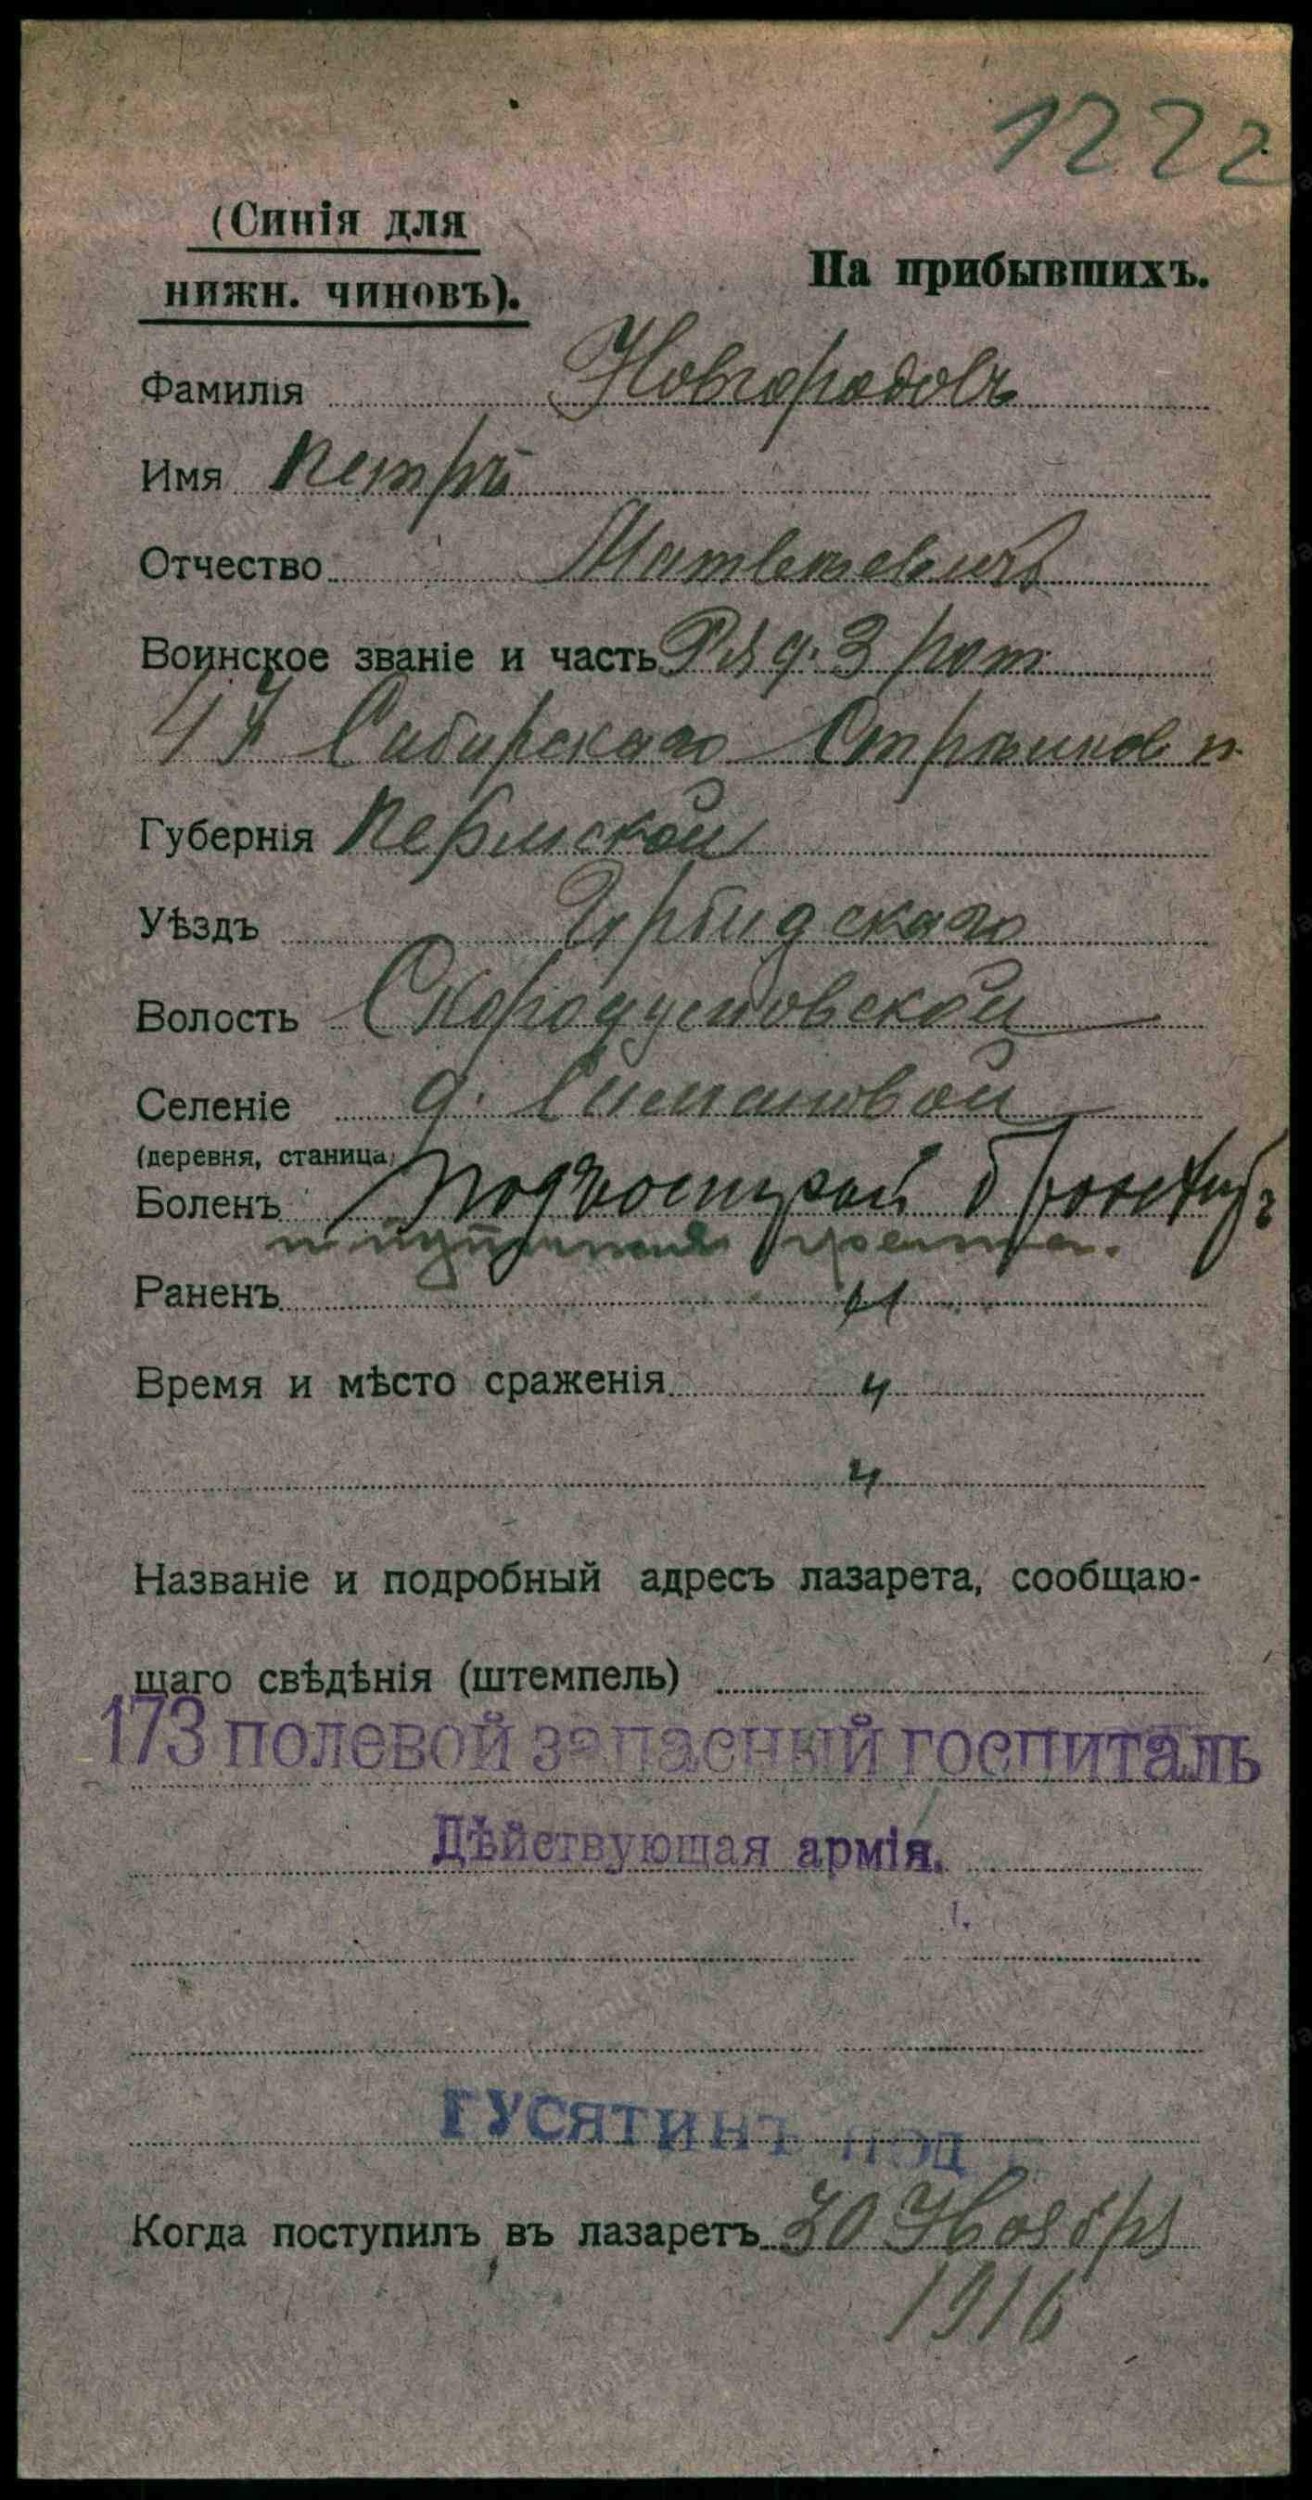 1222
(Синія для
нижн. чиновъ).
На прибывшихъ.
Фамилія Новгородовъ
Имя Петръ
Отчество Матвѣевичъ
Воинское званіе и часть Ряд. 3 рот
47 Сибирскаго Стрѣлков п
Губернія Пермской
Уѣздъ Ирбидскаго
Волость Скородумовской
Селеніе д. Симановой
(деревня, станица)
Боленъ Подъострый бронхитъ
Раненъ "
Время и мѣсто сраженія "
"
Названіе и подробный адресъ лазарета, сообщаю-
щаго свѣдѣнія (штемпель)
173 полевой запасный госпиталь
Дѣйствующая армія.
ГУСЯТИНЪ под
Когда поступилъ въ лазаретъ 30 Ноября
1916